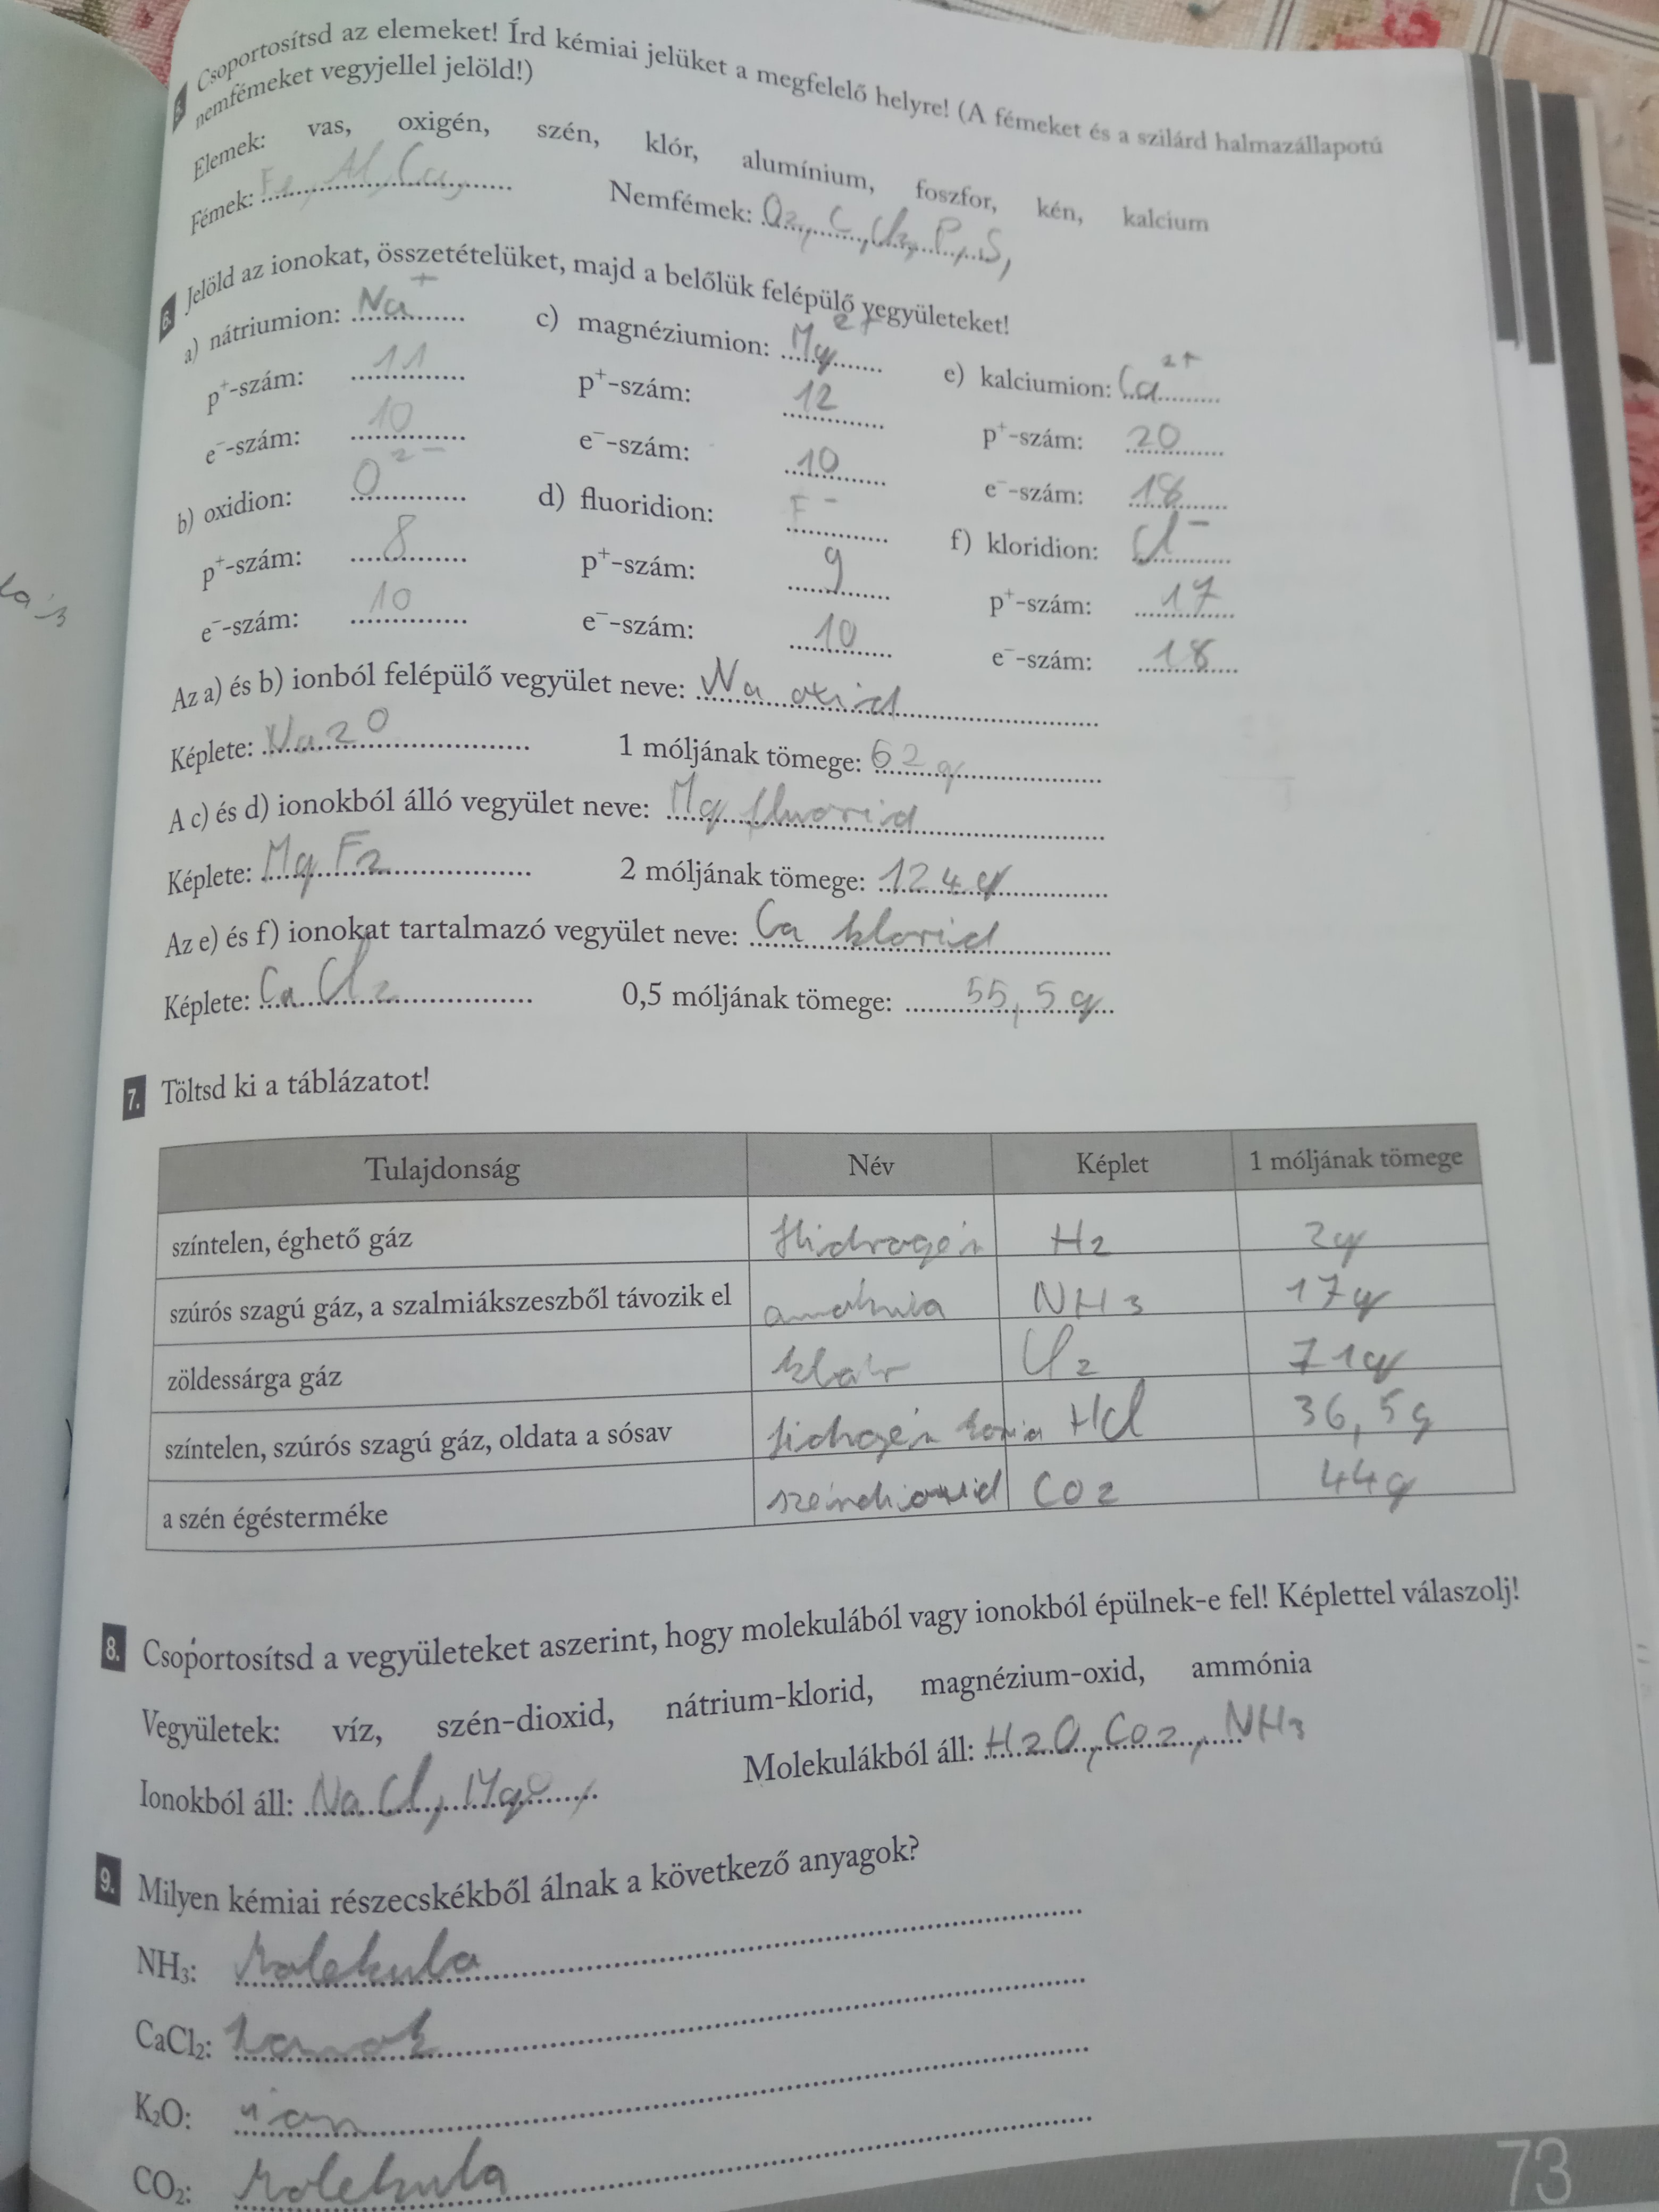 5. Csoportosítsd az elemeket! Írd kémiai jelüket a megfelelő helyre! (A fémeket és a szilárd halmazállapotú
nemfémeket vegyjellel jelöld!)
Elemek: vas, oxigén, szén, klór, alumínium, foszfor, kén, kalcium
Fémek: Fe, Al, Ca, Nemfémek: O2, C, Cl2, P, S,
6. Jelöld az ionokat, összetételüket, majd a belőlük felépülő vegyületeket!
a) nátriumion: Na+ c) magnéziumion: Mg2+ e) kalciumion: Ca2+
p+-szám: 11 p+-szám: 12 p+-szám: 20
e−-szám: 10 e−-szám: 10 e−-szám: 18
b) oxidion: O2− d) fluoridion: F− f) kloridion: Cl−
p+-szám: 8 p+-szám: 9 p+-szám: 17
e−-szám: 10 e−-szám: 10 e−-szám: 18
Az a) és b) ionból felépülő vegyület neve: Na oxid
Képlete: Na2O 1 móljának tömege: 62 g
A c) és d) ionokból álló vegyület neve: Mg fluorid
Képlete: MgF2 2 móljának tömege: 124 g
Az e) és f) ionokat tartalmazó vegyület neve: Ca klorid
Képlete: CaCl2 0,5 móljának tömege: 55,5 g
7. Töltsd ki a táblázatot!
Tulajdonság Név Képlet 1 móljának tömege
színtelen, éghető gáz Hidrogén H2 2g
szúrós szagú gáz, a szalmiákszeszből távozik el NH3 17g
zöldessárga gáz klór Cl2 71g
színtelen, szúrós szagú gáz, oldata a sósav HCl 36,5g
a szén égésterméke széndioxid CO2 44g
8. Csoportosítsd a vegyületeket aszerint, hogy molekulából vagy ionokból épülnek-e fel! Képlettel válaszolj!
Vegyületek: víz, szén-dioxid, nátrium-klorid, magnézium-oxid, ammónia
Ionokból áll: NaCl, MgO, Molekulákból áll: H2O, CO2, NH3
9. Milyen kémiai részecskékből álnak a következő anyagok?
NH3: Molekula
CaCl2:
K2O: ion
CO2: Molekula
73